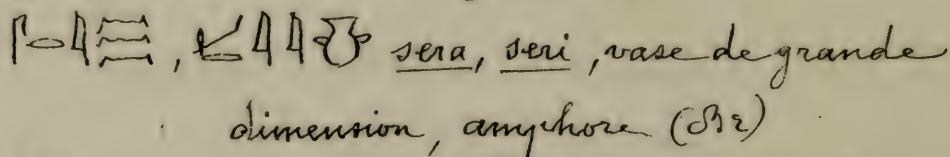 𓋴𓂋𓇋𓈗, 𓇋𓇋 sera, seri, vase de grande
dimension, amphore (Br)